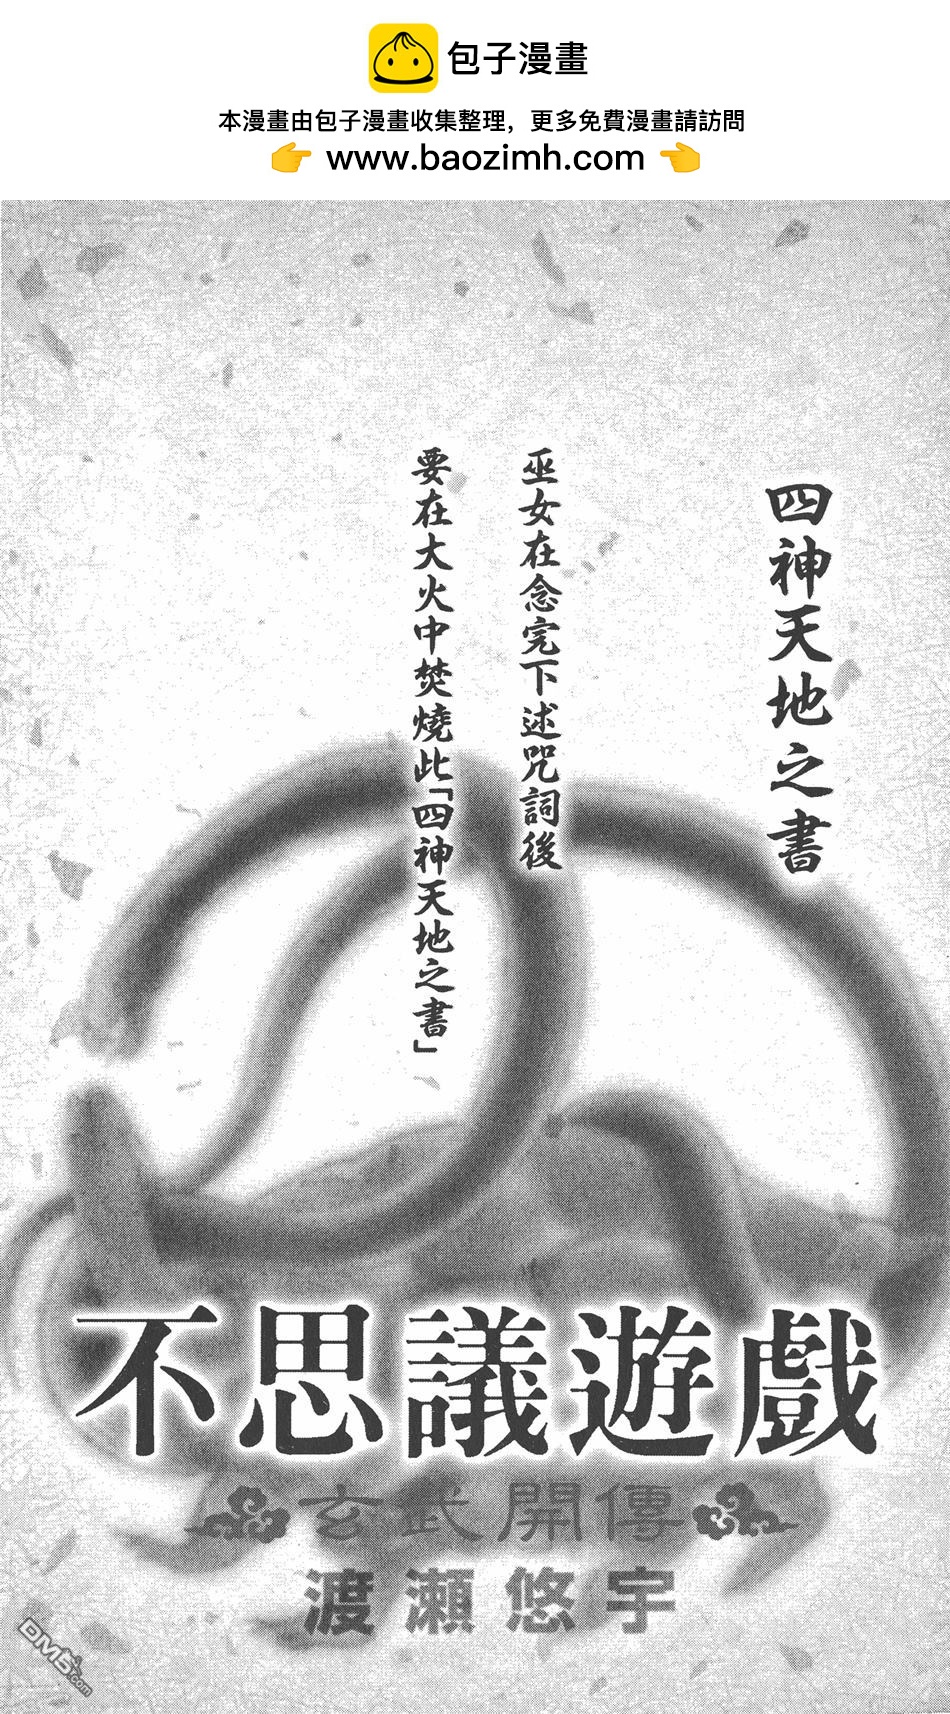 包子漫畫
本漫畫由包子漫畫收集整理，更多免費漫畫請訪問
www.baozimh.com
四神天地之書
巫女在念完下述咒詞後
要在大火中焚燒此「四神天地之書」
不思議遊戲
玄武開傳
渡瀨悠宇
DM5.com